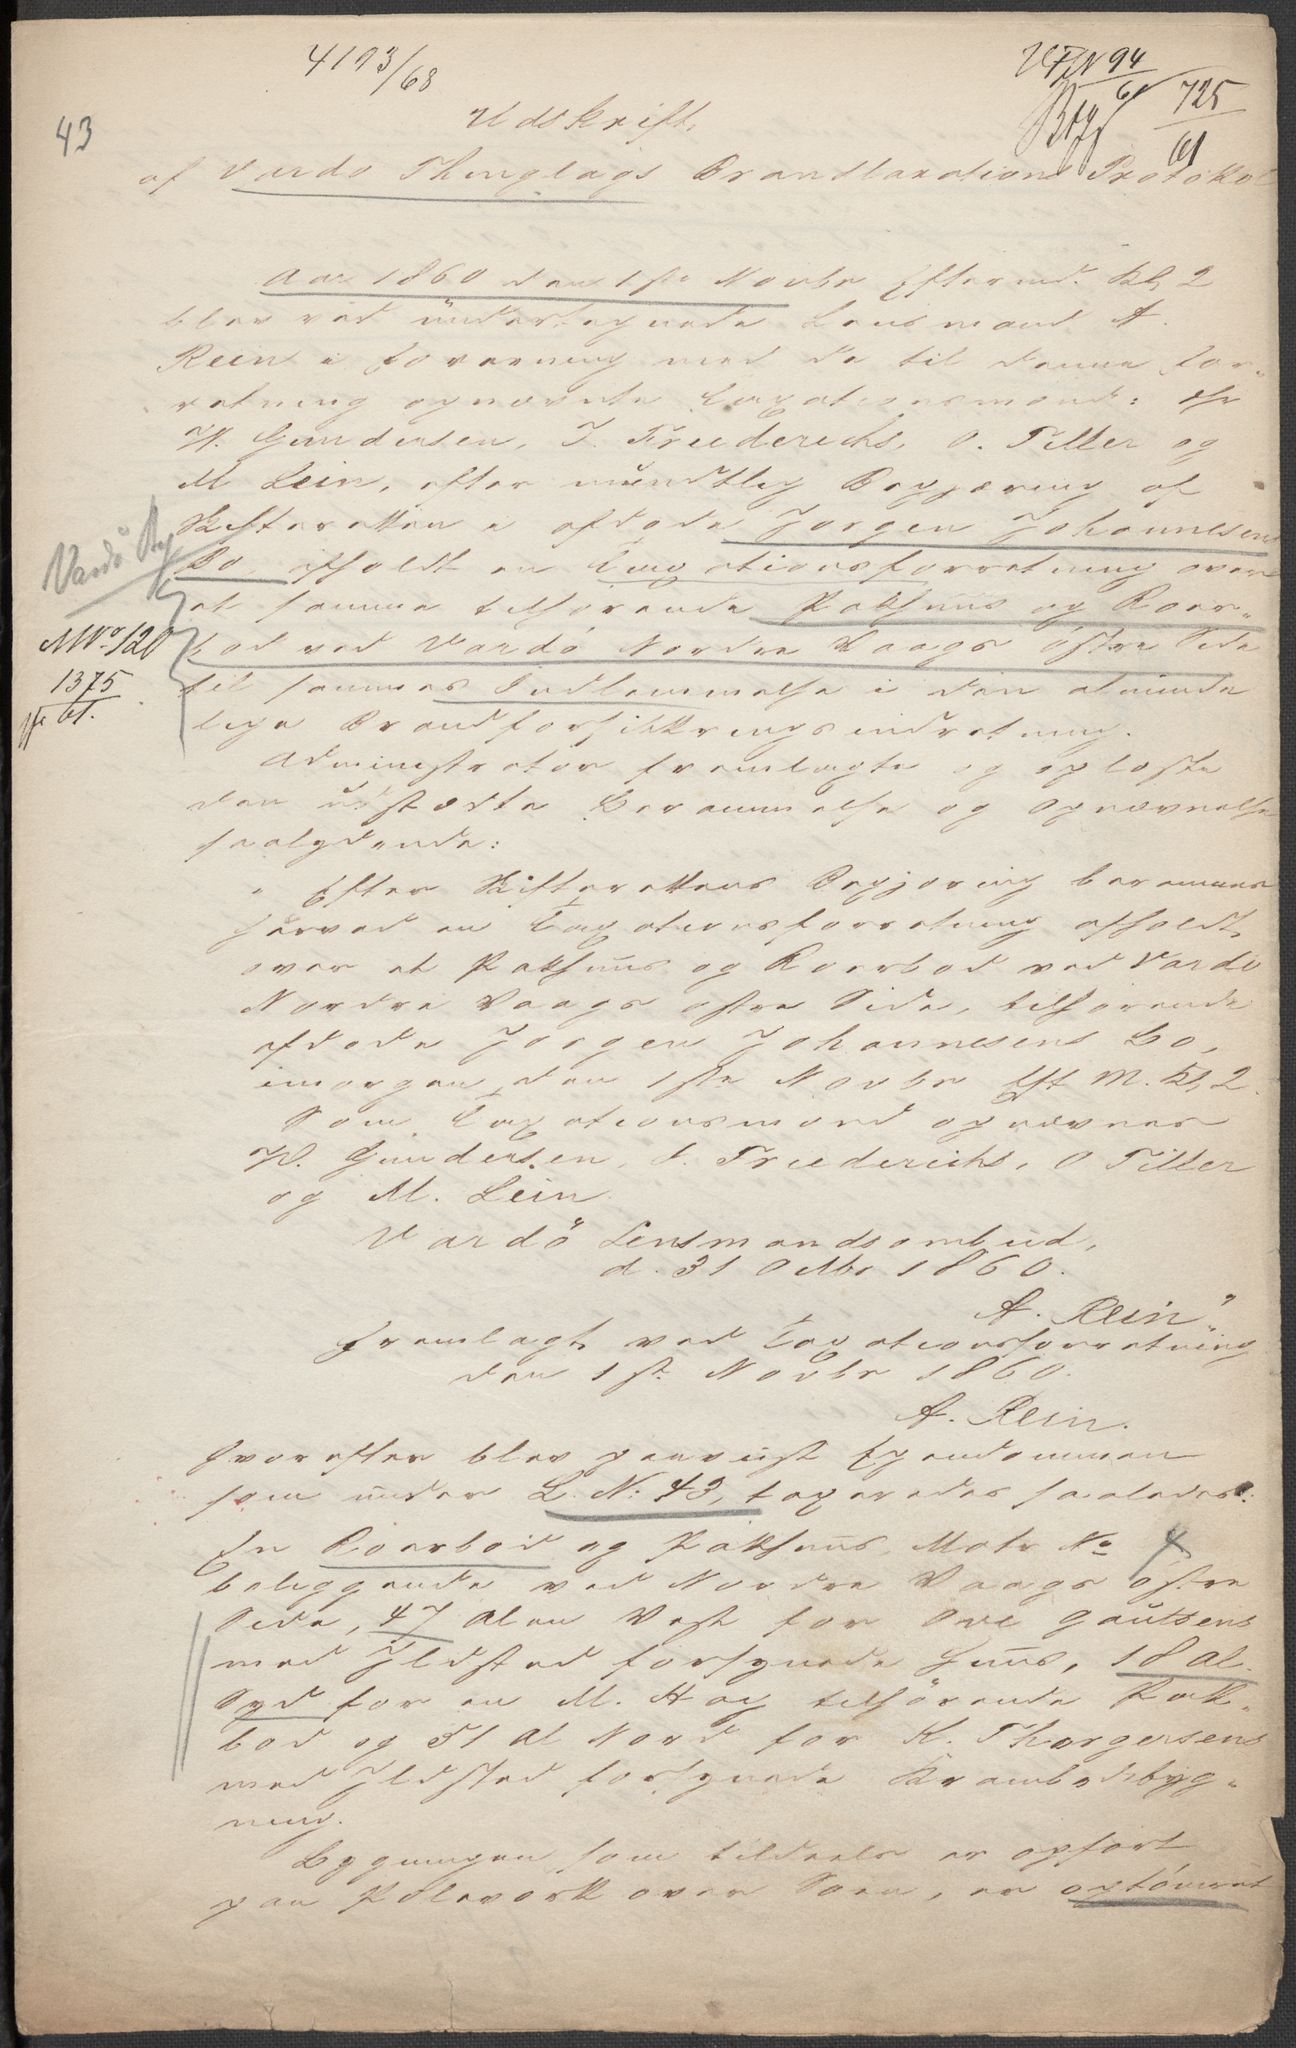 4193/68
43
725
61
Udskrift
af Vardø Thinglags Brandtaxations Protokol
Aar 1860 den 1ste Novbr Efterm. Kl 2
blev ved undertegnede Lensmand A.
Rein i forening med de til denne For-
retning opnævnte Taxationsmænd:
W. Gundersen, J. Friederichs, O. Tiller og
M Lein, efter mundtlig Begjæring af
Skifteretten i afdøde Jørgen Johannesens
Bo afholdt en Taxationsforretning over
et samme tilhørende Pakhuus og Roer-
bod ved Vardö Nordre Vaags östre Side
til sammes Indlemmelse i den alminde
lige Brandforsikkringsindretning.
Vardö By
MNo 120
1375
61.
Administrator fremlagte og oplæste
den udstædte Berammelse og Opnævnelse
saalydende:
"Efter Skifterettens Begjæring berammes
herved en Taxationsforretning afholdt
over et Pakhuus og Roerbod ved Vardö
Nordre Vaags østre Side, tilhørende
afdøde Jørgen Johannesens Bo,
imorgen, den 1ste Novbr Eft M. Kl, 2
Som Taxationsmænd opnævnes
W. Gundersen, J. Friederichs, O Tiller
og M. Lein.
Vardö Lensmandsombud,
d. 31 Octbr 1860.
A. Rein"
Fremlagt ved Taxationsforretning
den 1st. Novbr 1860.
A. Rein.
Hvorefter blev paaviist Ejendommen
som under L. N: 43, taxeredes saaledes:
En Roerbod og Pakhuus, Matr No
beliggende ved Nordre Vaags östre
Side, 47 Alen Vest for Ole Gautsens
med Ildsted forsynede Huus, 18 Al.
Syd for en M. Haag tilhörende Pak-
bod og 31 Al Nord for K. Thorgersens
med Ildsted forsynede Krambodbyg-
ning.
Bygningen som tildeels er opført
paa Pæleværk over Søen, er optömret